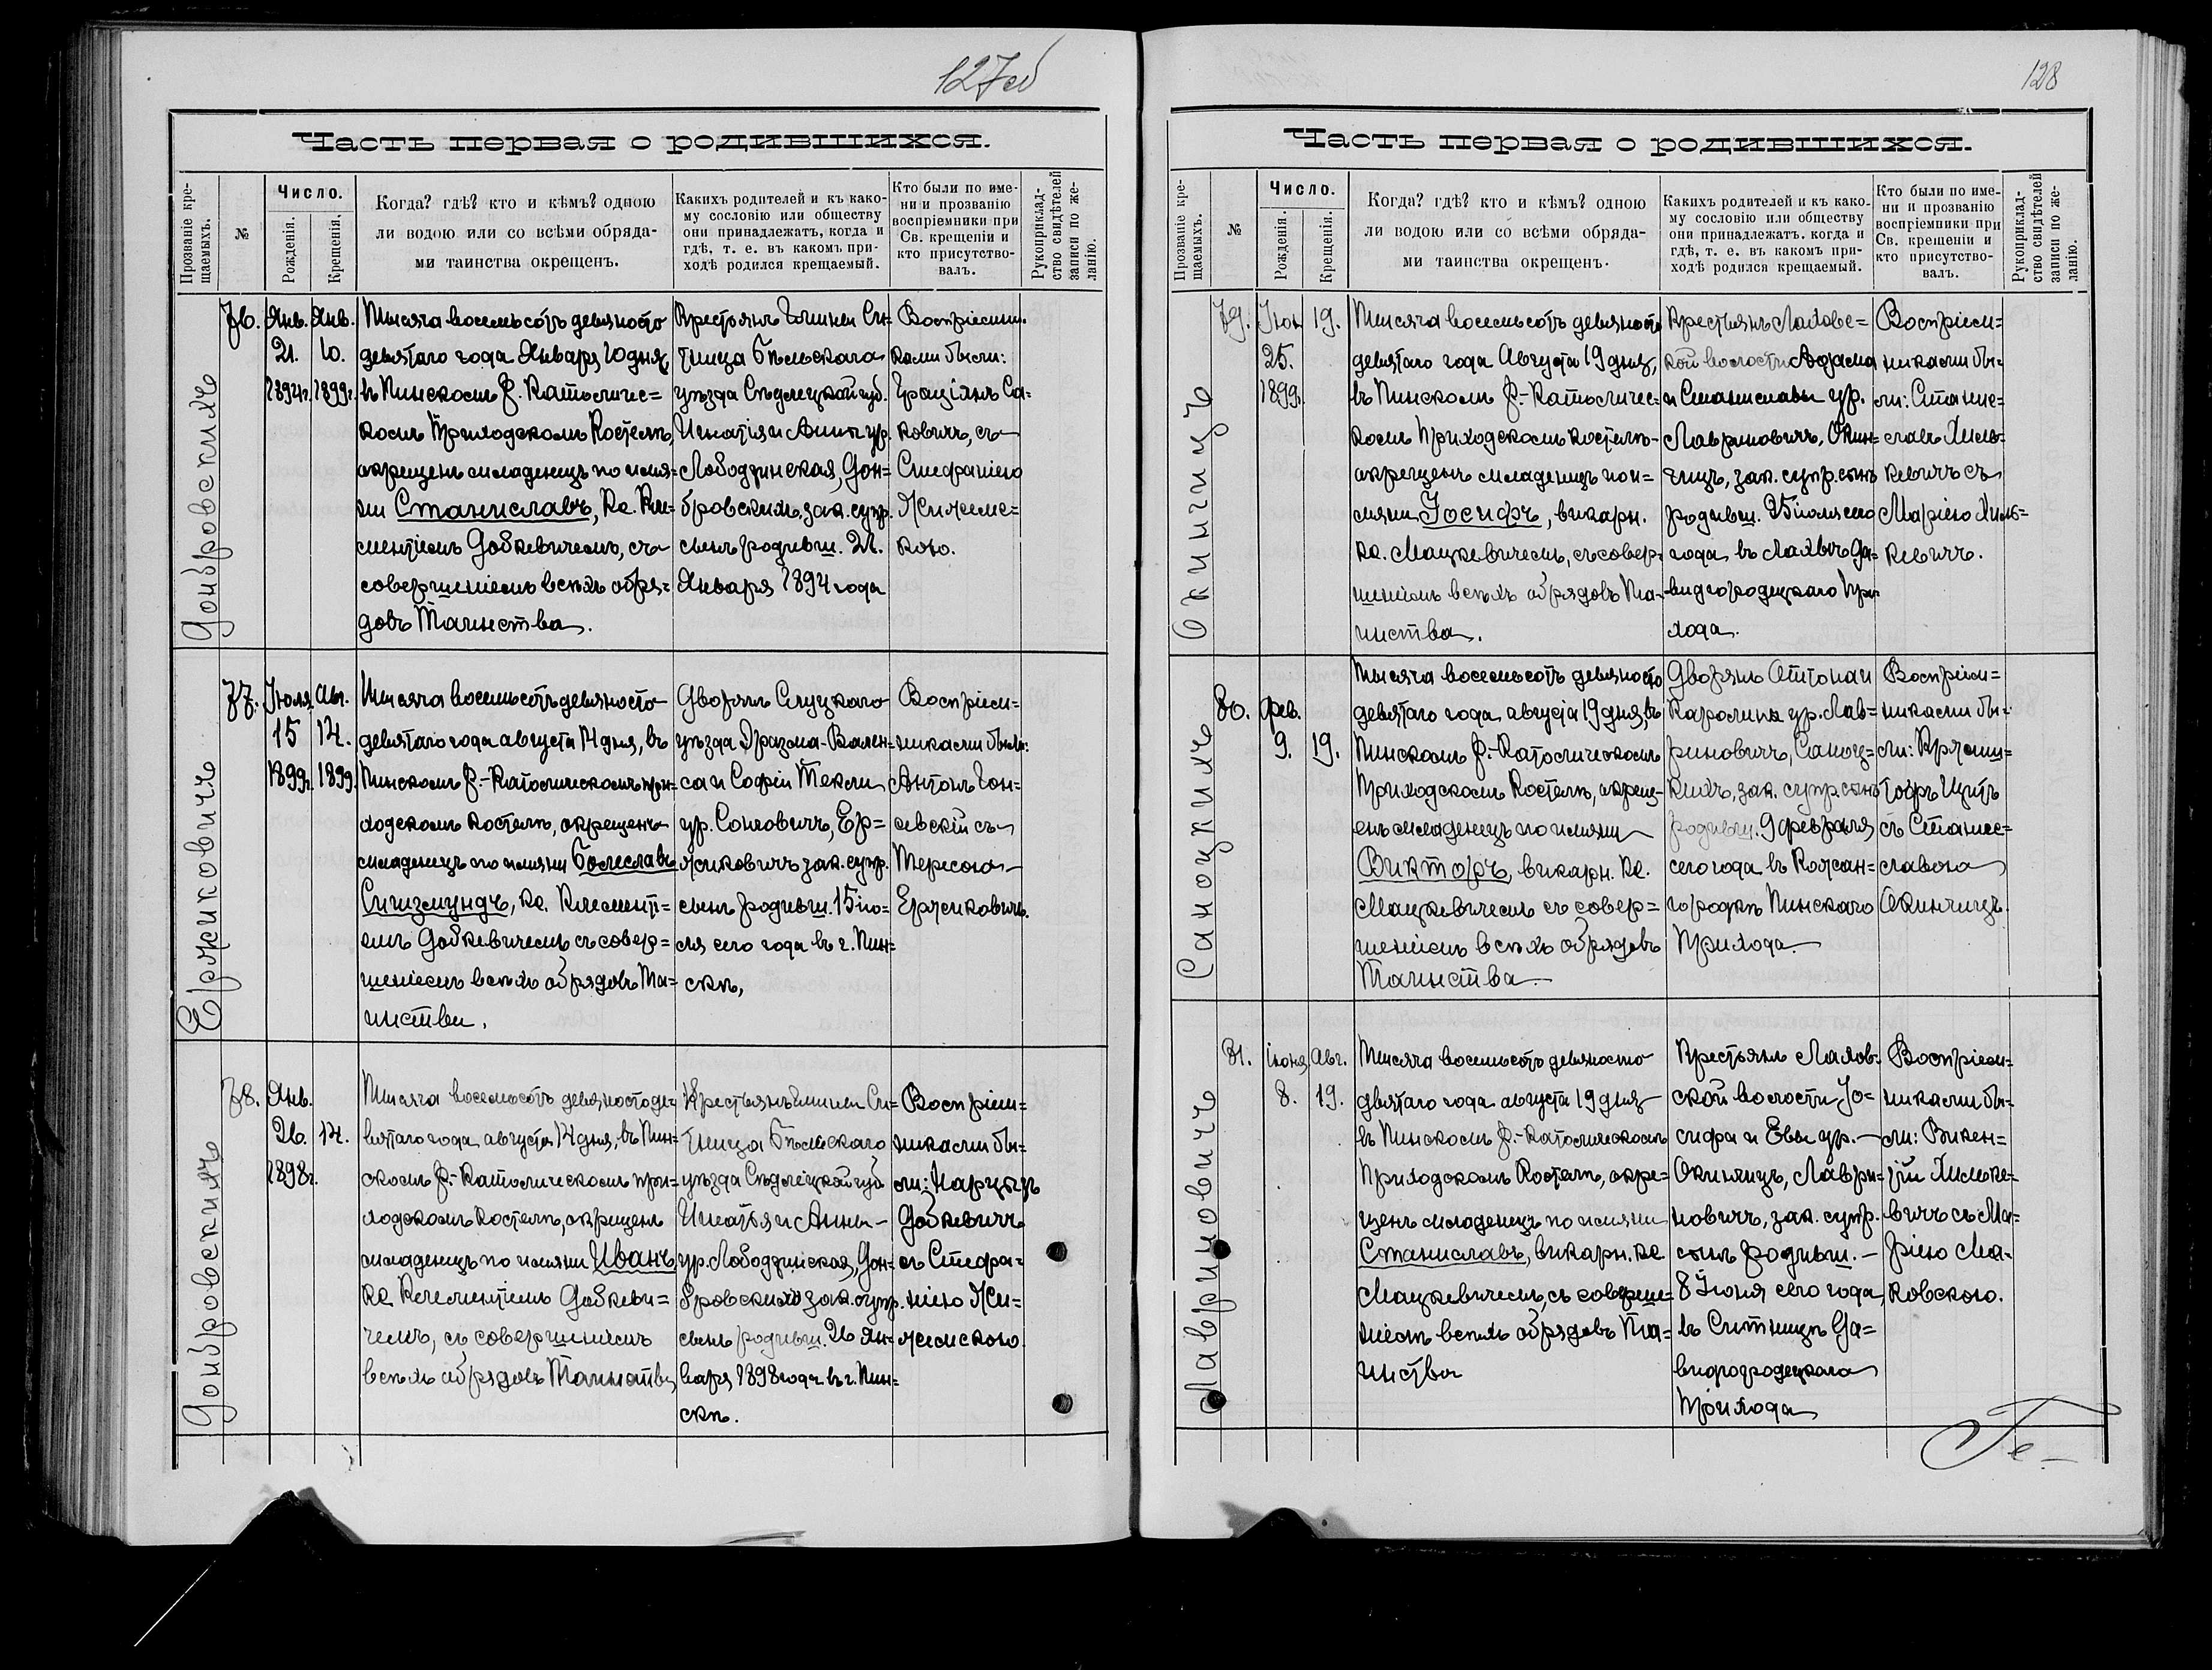 127об
Часть первая о родившихся.
Прозваніе крещаемыхъ.
№
Число.
Рожденія.
Крещенія.
Когда? гдѣ? кто и кѣмъ? одною
ли водою или со всѣми обряда-
ми таинства окрещенъ.
Какихъ родителей и къ како-
му сословію или обществу
они принадлежатъ, когда и
гдѣ, т. е. въ какомъ при-
ходѣ родился крещаемый.
Кто были по име-
ни и прозванію
воспріемники при
Св. крещеніи и
кто присутство-
валъ.
Рукоприклад-
ство свидѣтелей
записи по же-
ланію.
Домбровскихъ
76.
Янв.
21.
1894г.
Янв.
10.
1899г.
Тысяча восемьсотъ девяносто
девятаго года Января 10 дня,
въ Пинскомъ Р. Католичес=
комъ Приходскомъ Костелѣ,
окрещенъ младенецъ по имя=
ни Станиславъ, Кс. Кле=
ментіемъ Довкевичемъ, съ
совершеніемъ всѣхъ обря=
довъ Таинства.
Крестьянъ Гмины Си=
тница Бѣльскаго
уѣзда Сѣдлецкой губ.
Игнатія и Анны ур.
Лободзинская, Дом=
бровскихъ, зак. супр.
сынъ родивш. 21.
Января 1894 года
Воспріемни=
ками были:
Граціянъ Са=
ковичъ, съ
Стефаніею
Жилинс=
кою.
Ержиковичъ
77.
Іюля
15
1899г.
Авг.
14.
1899.
Тысяча восемьсотъ девяносто
девятаго года августа 14 дня, въ
Пинскомъ Р.-Католическомъ при=
ходскомъ костелѣ, окрещенъ
младенецъ по имяни Болеславъ
Сигизмундъ, Кс. Клементі=
емъ Довкевичемъ съ совер=
шеніемъ всѣхъ обрядовъ Та=
инства.
Дворянъ Слуцкаго
уѣзда Эразма-Вален=
са и Софіи Текли
ур. Сонговичъ, Ер=
жиковичъ зак. супр.
сынъ родивш. 15 ію=
ля сего года въ г. Пин=
скѣ,
Воспріем=
никами были:
Антонъ Гон=
севскій съ
Тересою
Ержиковичъ.
Домбровскихъ
78.
Янв.
26.
1898г.
14.
Тысяча восемьсотъ девяносто де=
вятаго года августа 14 дня, въ Пин=
скомъ Р.-Католическомъ при=
ходскомъ костелѣ, окрещенъ
младенецъ по имяни Иванъ,
Кс Клементіемъ Довкеви=
чемъ, съ совершеніемъ
всѣхъ обрядовъ Таинства,
Крестьянъ Гмины Си=
тница Бѣльскаго
уѣзда Сѣдлецкой губ
Игнатія и Анны
ур. Лободзинская, Дом=
бровскихъ зак. супр.
сынъ родивш. 26 Ян=
варя 1898 года въ г. Пин=
скѣ.
Воспріем=
никами бы=
ли: Нарцызъ
Довкевичъ
съ Стефа=
ніею Жи=
линскою.
128
Часть первая о родившихся.
Прозваніе крещаемыхъ.
№
Число.
Рожденія.
Крещенія.
Когда? гдѣ? кто и кѣмъ? одною
ли водою или со всѣми обряда-
ми таинства окрещенъ.
Какихъ родителей и къ како-
му сословію или обществу
они принадлежатъ. когда и
гдѣ, т. е. въ какомъ при-
ходѣ родился крещаемый.
Кто были по име-
ни и прозванію
воспріемники при
Св. крещеніи и
кто присутство-
валъ.
Рукоприклад-
ство свидѣтелей
записи по же-
ланію.
Окинчицъ
79.
Іюл.
25.
1899.
19.
Тысяча восемьсотъ девяносто
девятаго года Августа 19 дня,
въ Пинскомъ Р.-Католичес=
комъ Приходскомъ костелѣ
окрещенъ младенецъ по и=
мяни Іосифъ, викарн.
Кс. Мацкевичемъ, съ совер=
шеніемъ всѣхъ обрядовъ Та=
инства.
Крестьянъ Лахове=
кой волости Адама
и Станиславы ур.
Лавриновичъ, Окин=
чицъ, зак. супр. сынъ
родивш. 25 іюля сего
года въ Лахвѣ Да=
видгородецкаго При=
хода.
Воспріем=
никами бы=
ли: Станис=
славъ Хиль=
кевичъ съ
Маріею Хиль=
кевичъ.
Саноцкихъ
80.
Фев.
9.
19.
Тысяча восемьсотъ девяносто
девятаго года августа 19 дня, въ
Пинскомъ Р.-Католическомъ
Приходскомъ Костелѣ, окрещ=
енъ младенецъ по имяни
Викторъ, викарн. Кс.
Мацкевичемъ съ совер=
шеніемъ всѣхъ обрядовъ
Таинства.
Дворянъ Антона и
Каролины ур. Лав=
риновичъ, Саноц=
кихъ, зак. супр. сынъ
родивш. 9 февраля
сего года въ Кожан=
городкѣ Пинскаго
Прихода
Воспріем=
никами бы=
ли: Кржиш=
тофъ Щитъ
съ Станис=
славою
Окинчицъ.
Лавриновичъ
81.
Іюня
8.
Авг.
19.
Тысяча восемьсотъ девяносто
девятаго года августа 19 дня
въ Пинскомъ Р.-Католическомъ
Приходскомъ Костелѣ, окре=
щенъ младенецъ по имяни
Станиславъ, викарн. Кс
Мацкевичемъ, съ соверше=
ніемъ всѣхъ обрядовъ Та=
инства
Крестьянъ Лахов=
ской волости Іо=
сифа и Евы ур.
Окинчицъ, Лаври=
новичъ, зак. супр.
сынъ родивш.
8 Іюня сего года,
въ Ситницѣ Да=
видгородецкаго
Прихода
Воспріем=
никами бы=
ли: Викен=
тій Хильке=
вичъ съ Ма=
ріею Ма=
ковскою.